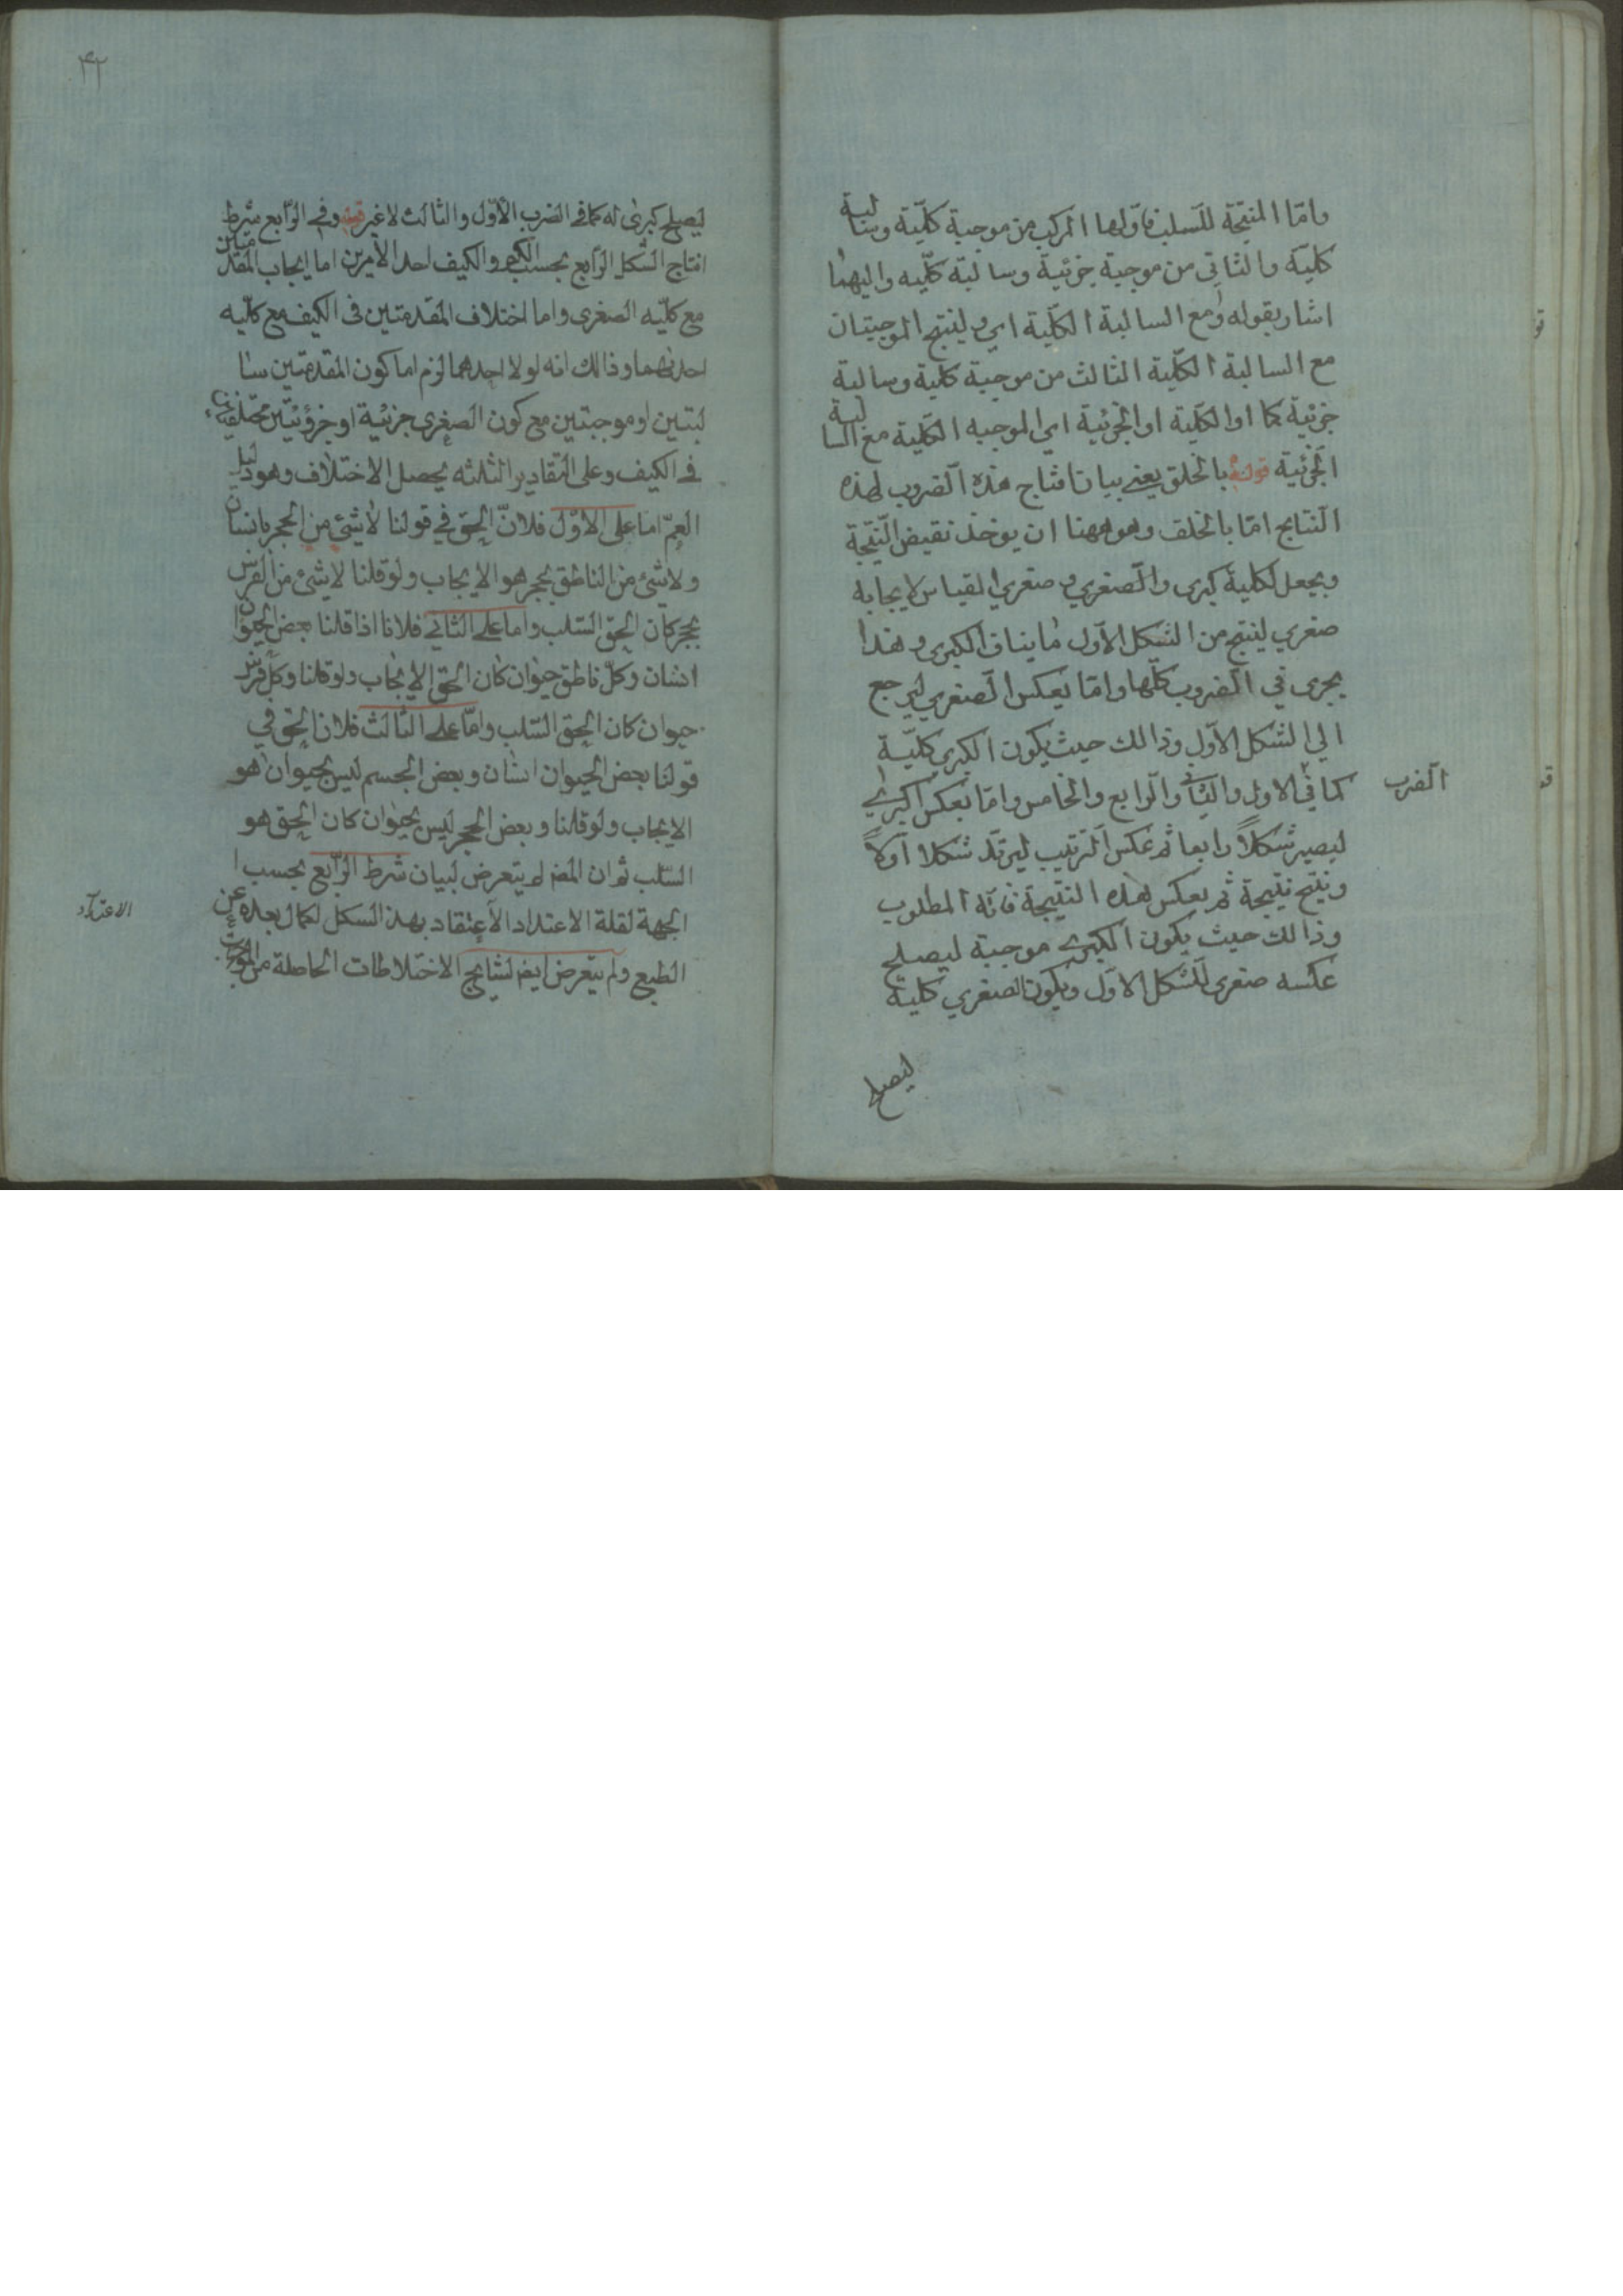 وامّا المنتجة للسلب فاوّلها المركب من موجبة كلّية وسالبة
كليّة والثاني من موجبة جزئية وسالبة كلّيه واليهما
اشار بقوله ومع السالبة الكلّية اي ولينتج الموجبتان
مع السالبة الكلّية الثالث من موجبة كلية وسالبة
جزئية كما او الكلّية او الجزئية اي الموجبه الكلّية مع السالبة
الجزئية قوله بالخلق يعني بيان انتاج هذه الضروب لهذه
النتايج امّا بالخلف وهو ههنا ان يوخذ نقيض النتيجة
ويجعل لكلية كبرى والصغري و صغري القياس لايجابه
صغري لينتج من الشكل الاوّل ما ينافي الكبرى وهذا
يجرى في الضروب كلّها وامّا بعكس الصغري ليرجع
الي الشكل الاوّل وذالك حيث يكون الكبرى كليّة
الضرب
كما في الاول والثاني والرابع والخامس وامّا بعكس الكبرى
ليصير شكلاً رابعا ثم عكس الترتيب ليرتد شكلا اوّلاً
وينتج نتيجة ثم يعكس هذه النتيجة فانّه المطلوب
وذالك حيث يكون الكبرى موجبة ليصلح
عكسه صغرى للشكل الاوّل ويكون الصغري كلية
ليصلح
۴۲
ليصلح كبرى له كما في الضرب الاوّل والثالث لا غير قوله وفي الرّابع شرط
انتاج الشكل الرّابع بحسب الكم والكيف احد الامرين اما ايجاب المقدمتين
مع كلّيه الصغرى واما اختلاف المقدمتين في الكيف مع كلّيه
احديهما وذالك انه لولا احدهما لزم اما كون المقدمتين سا
لبتين او موجبتين مع كون الصغرى جزئية او جزؤئتين مختلفين
في الكيف وعلى التقادير الثلثه يحصل الاختلاف وهو دليل
العمّ اما على الاوّل فلانّ الحق في قولنا لا شئ من الحجر بانسان
ولا شئ من الناطق بحجر هو الايجاب ولو قلنا لا شئ من الفرس
بحجر كان الحق السّلب واما على الثاني فلانا اذا قلنا بعض الحيوان
انسان وكلّ ناطق حيوان كان الحق الايجاب ولو قلنا وكل فرس
حيوان كان الحق السّلب وامّا على الثالث فلان الحق في
قولنا بعض الحيوان انسان وبعض الجسم ليس بحيوان هو
الايجاب ولو قلنا وبعض الحجر ليس بحيوان كان الحق هو
السّلب ثم ان المصّ لم يتعرض لبيان شرط الرّابع بحسب ا
الجهة لقلة الاعتداد الاعتقاد بهذ الشكل لكمال بعده عن
الاعتداد
الطبع ولم يتعرض ايضا لنتايج الاختلاطات الحاصلة من الموجهات